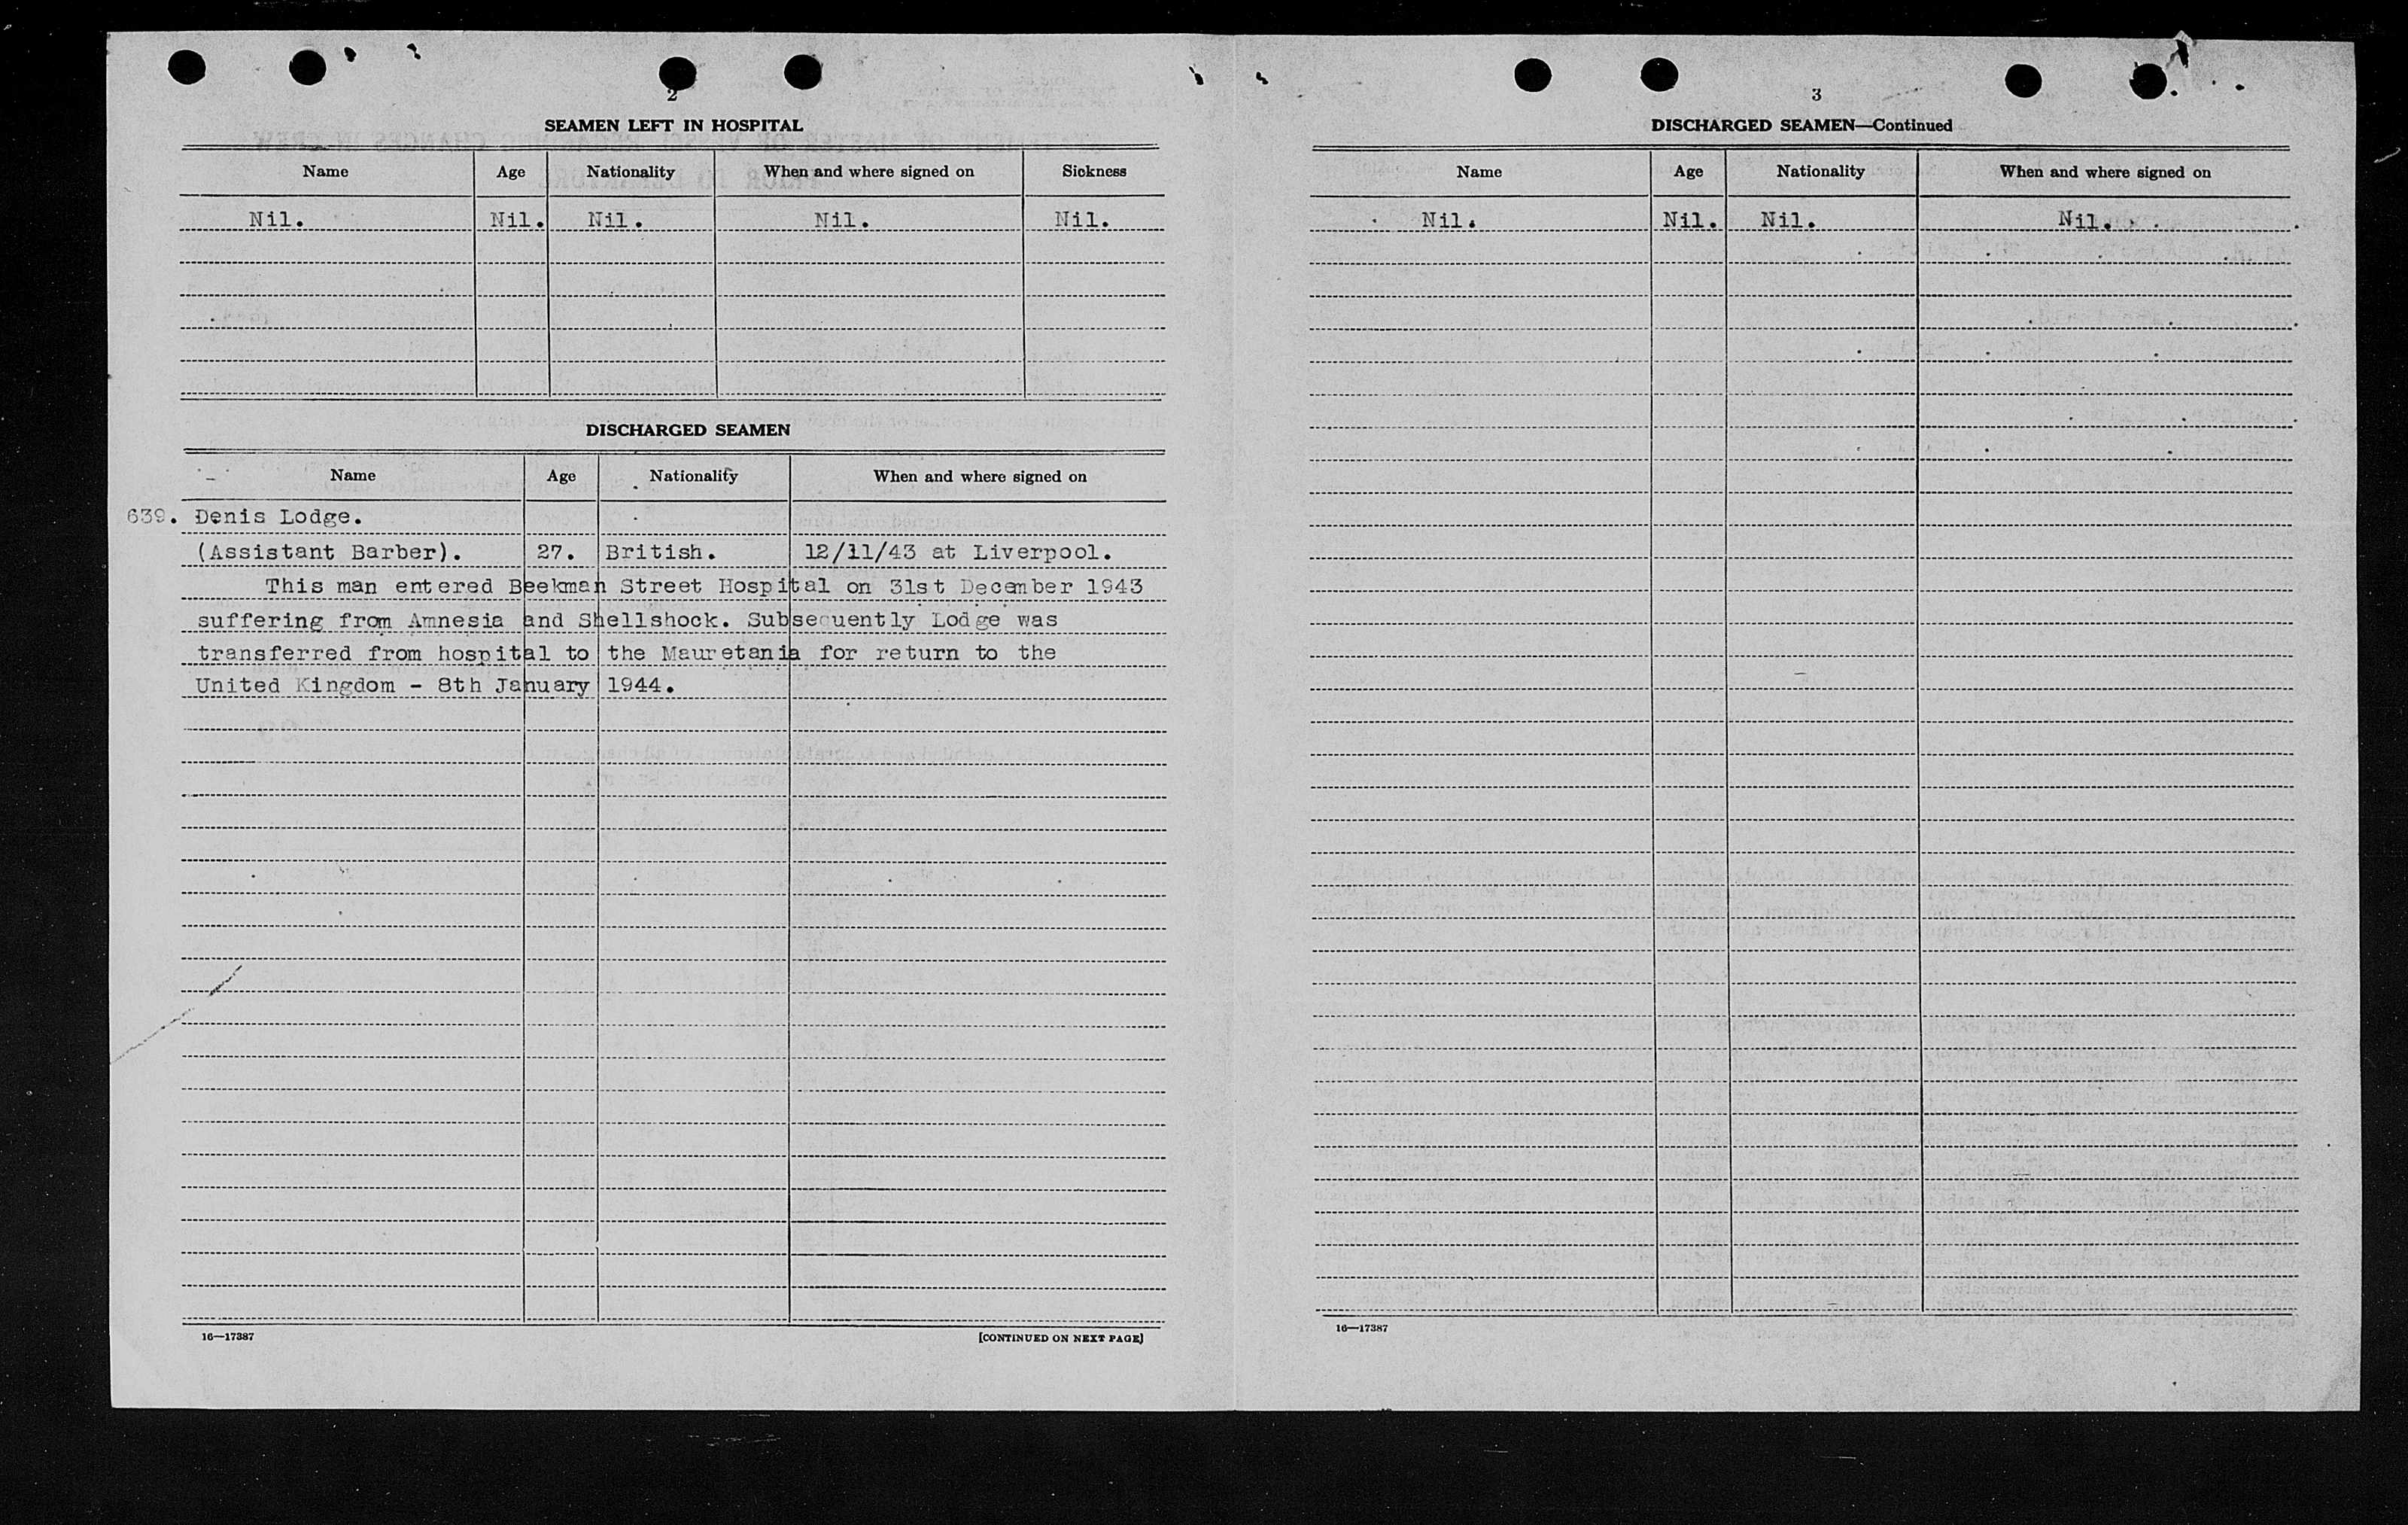 2
SEAMEN LEFT IN HOSPITAL
Name Age Nationality When and where signed on Sickness
Nil. Nil. Nil. Nil. Nil.
DISCHARGED SEAMEN
Name Age Nationality When and where signed on
639. Denis Lodge.
(Assistant Barber). 27. British. 12/11/43 at Liverpool.
This man entered Beekman Street Hospital on 31st December 1943
suffering from Amnesia and Shellshock. Subsequently Lodge was
transferred from hospital to the Mauretania for return to the
United Kingdom - 8th January 1944.
16—17387 [CONTINUED ON NEXT PAGE]
3
DISCHARGED SEAMEN—Continued
Name Age Nationality When and where signed on
Nil. Nil. Nil. Nil.
16—17387